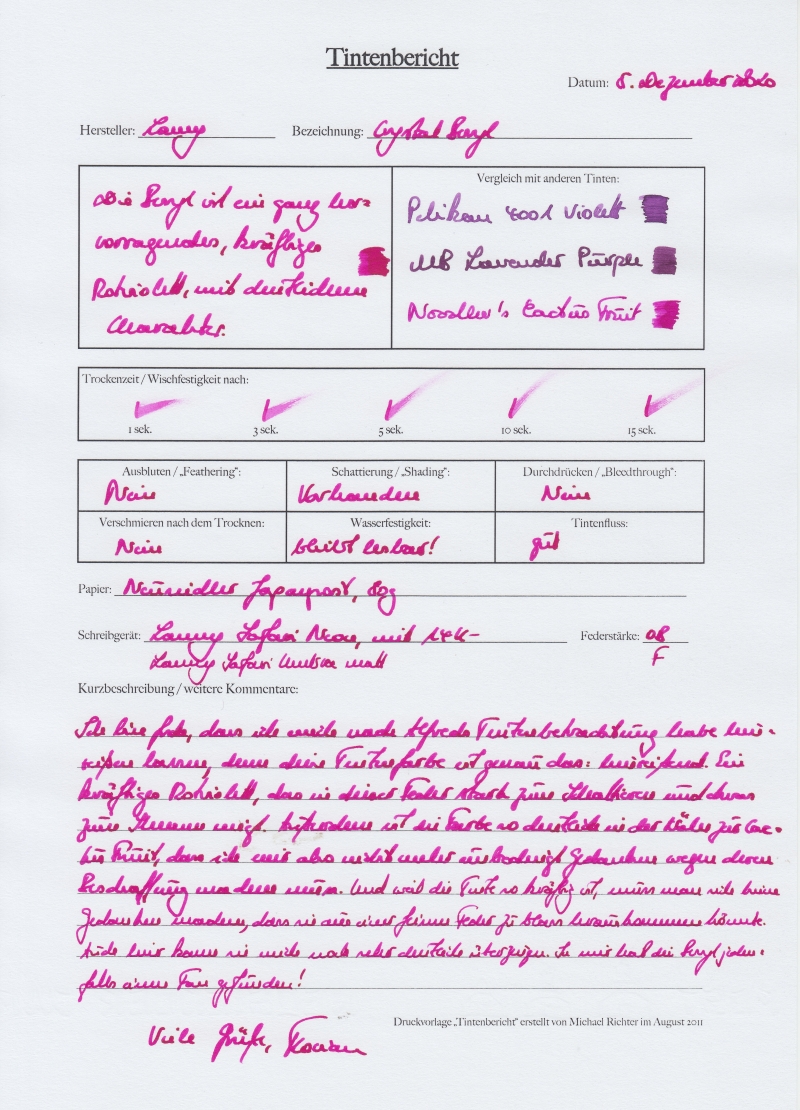 Tintenbericht
Datum: 5. Dezember 2020
Hersteller: Lamy Bezeichnung: Crystal Beryl
Die Beryl ist ein ganz her=
vorragendes, kräftiges
Rotviolett, mit deutlichem
Charakter.
Vergleich mit anderen Tinten:
Pelikan 4001 Violett
MB Lavender Purple
Noodler's Cactus Fruit
Trockenzeit / Wischfestigkeit nach:
1 sek. 3 sek. 5 sek. 10 sek. 15 sek.
Ausbluten / „Feathering“: Schattierung / „Shading“: Durchdrücken / „Bleedthrough“:
Nein Vorhanden Nein
Verschmieren nach dem Trocknen: Wasserfestigkeit: Tintenfluss:
Nein bleibt lesbar! gut
Papier: Neusiedler Japanpost, 80g
Schreibgerät: Lamy Safari Neon, mit 14K- Federstärke: OB
Lamy Safari Umbra matt F
Kurzbeschreibung / weitere Kommentare:
Ich bin froh, dass ich mich nach Alfreds Tintenbetrachtung habe hin-
reißen lassen, denn diese Tintenfarbe ist genau das: hinreißend. Ein
kräftiges Rotviolett, das in dieser Feder stark zum Schattieren und etwas
zum neigt. Außerdem ist die Farbe so deutlich in der Nähe zur Cac-
tus Fruit, dass ich mir also nicht mehr unbedingt Gedanken wegen deren
Beschaffung machen muss. Und weil die Tinte so kräftig ist, muss man sich keine
Gedanken machen, dass sie aus einer feinen Feder zu blass herauskommen könnte.
Auch hier kann sie mich noch sehr deutlich überzeugen. In mir hat die Beryl jeden-
falls einen Fan gefunden!
Druckvorlage „Tintenbericht“ erstellt von Michael Richter im August 2011
Viele Grüße, Florian